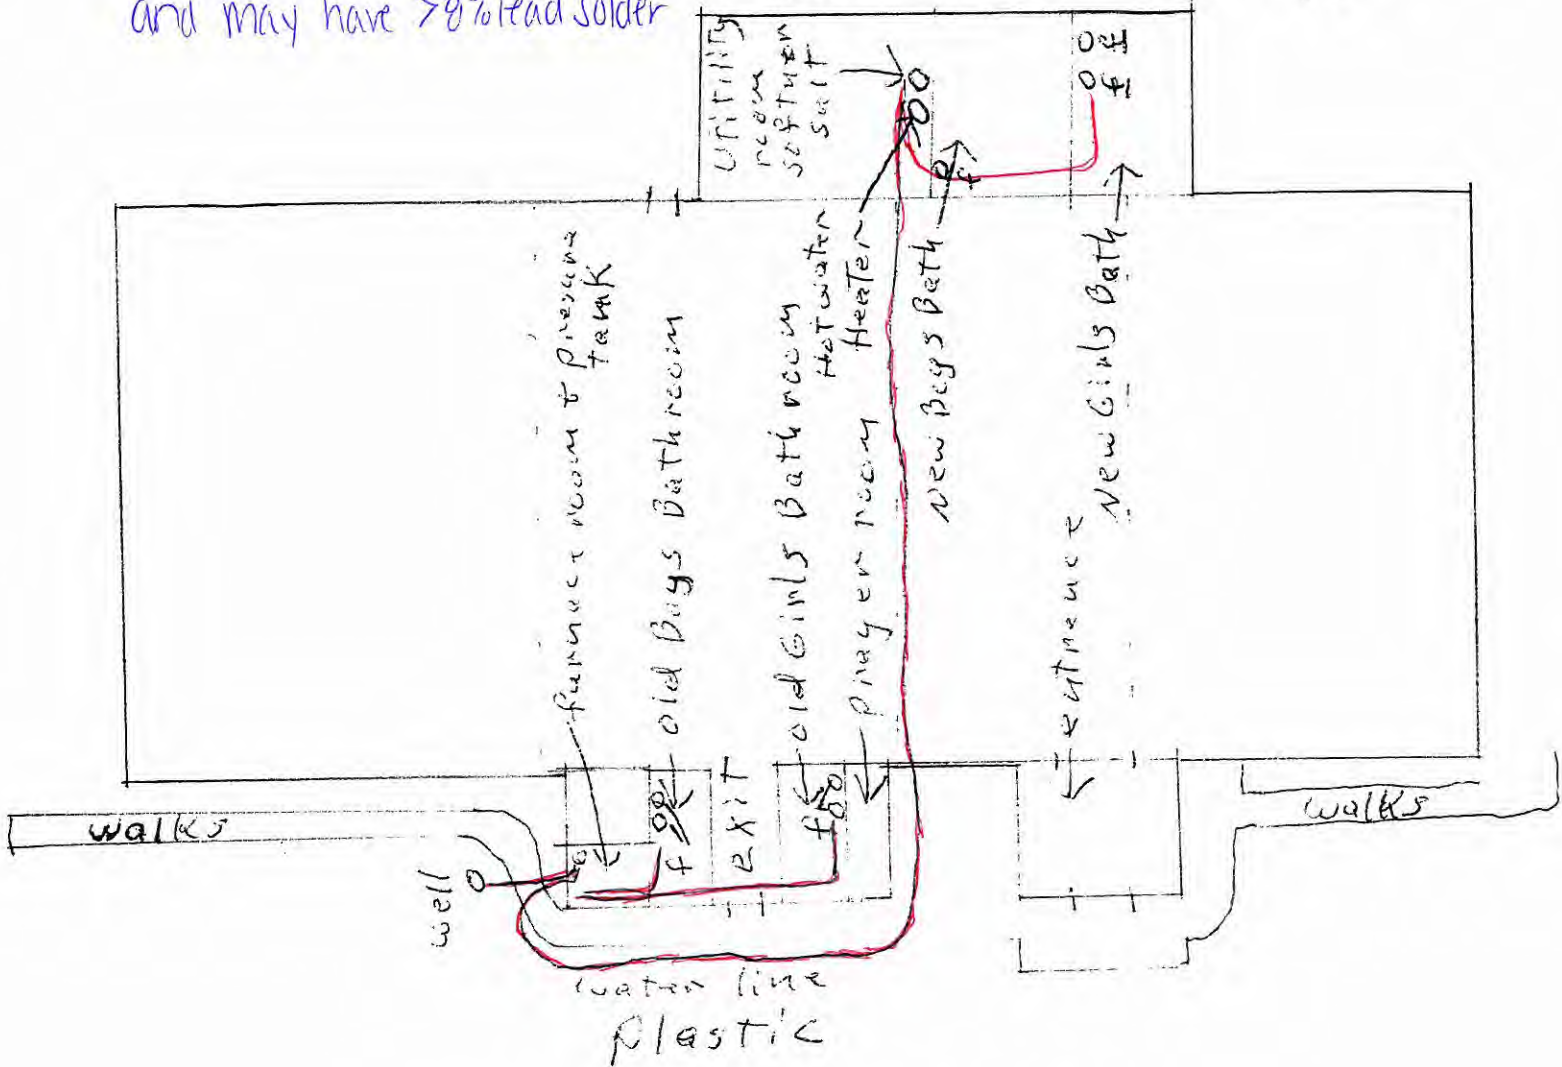 and may have >8% lead solder
Utility
room
softner
salt
furnace room & pressure
tank
old Boys Bathroom
old Girls Bathroom
Hot water
Heater
prayer room
New Boys Bath
entrance
New Girls Bath
exit
f
f
f
f
f
walks
walks
well
water line
plastic